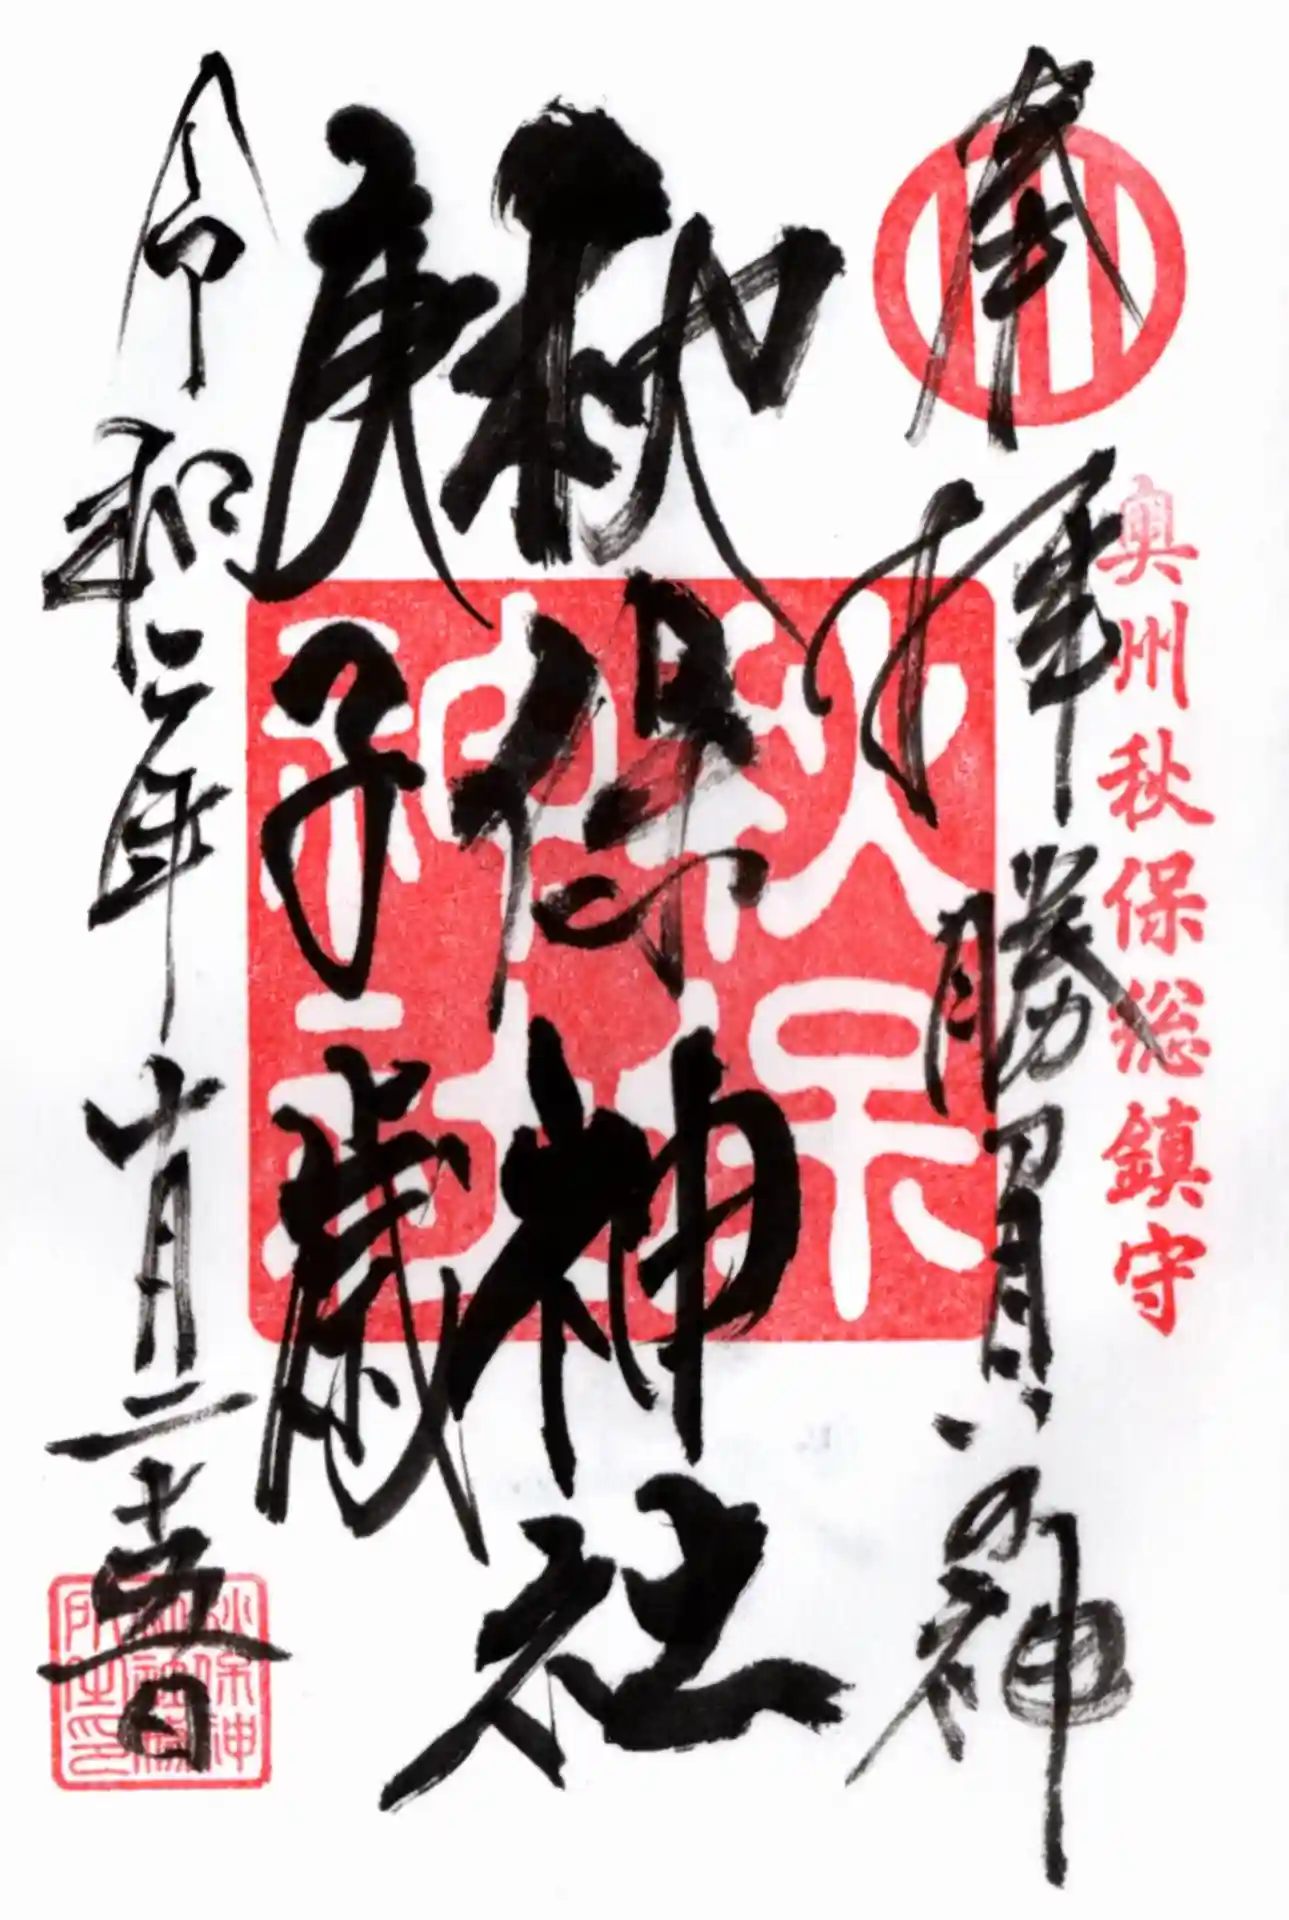 奉拝
勝負の神
奥州秋保総鎮守
秋保神社
秋保神社
庚子歳
令和二年十月二十五日
秋保神
社社務
所之印